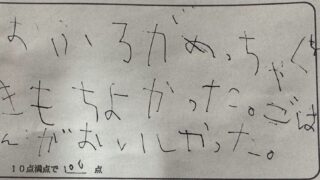 おふろがめっちゃくち
きもちよかった。ごは
んがおいしかった。
10点満点で 100 点